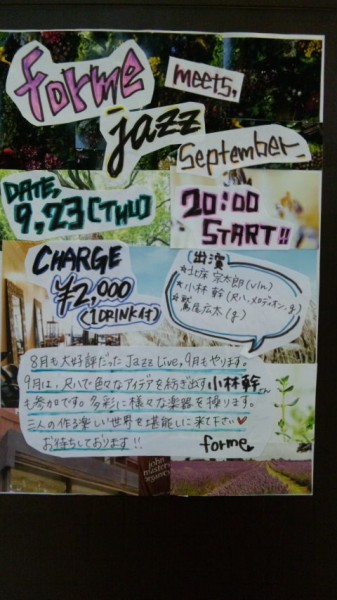 forme
meets,
jazz
September_
DATE,
9,23(THU)
20:00
START!!
CHARGE
¥2,000
(1DRINK付)
出演
土屋 宗太郎(vln)
小林 幹(尺八,メロディオン,g)
鷲尾広太(g)
8月も大好評だったJazz Live,9月もやります。
9月は、尺八で色々なアイデアを紡ぎ出す小林幹さん
も参加です。多彩に様々な楽器を操ります。
三人の作る楽しい世界を堪能しに来て下さい♥
お待ちしております!!
forme
john
masters
organics